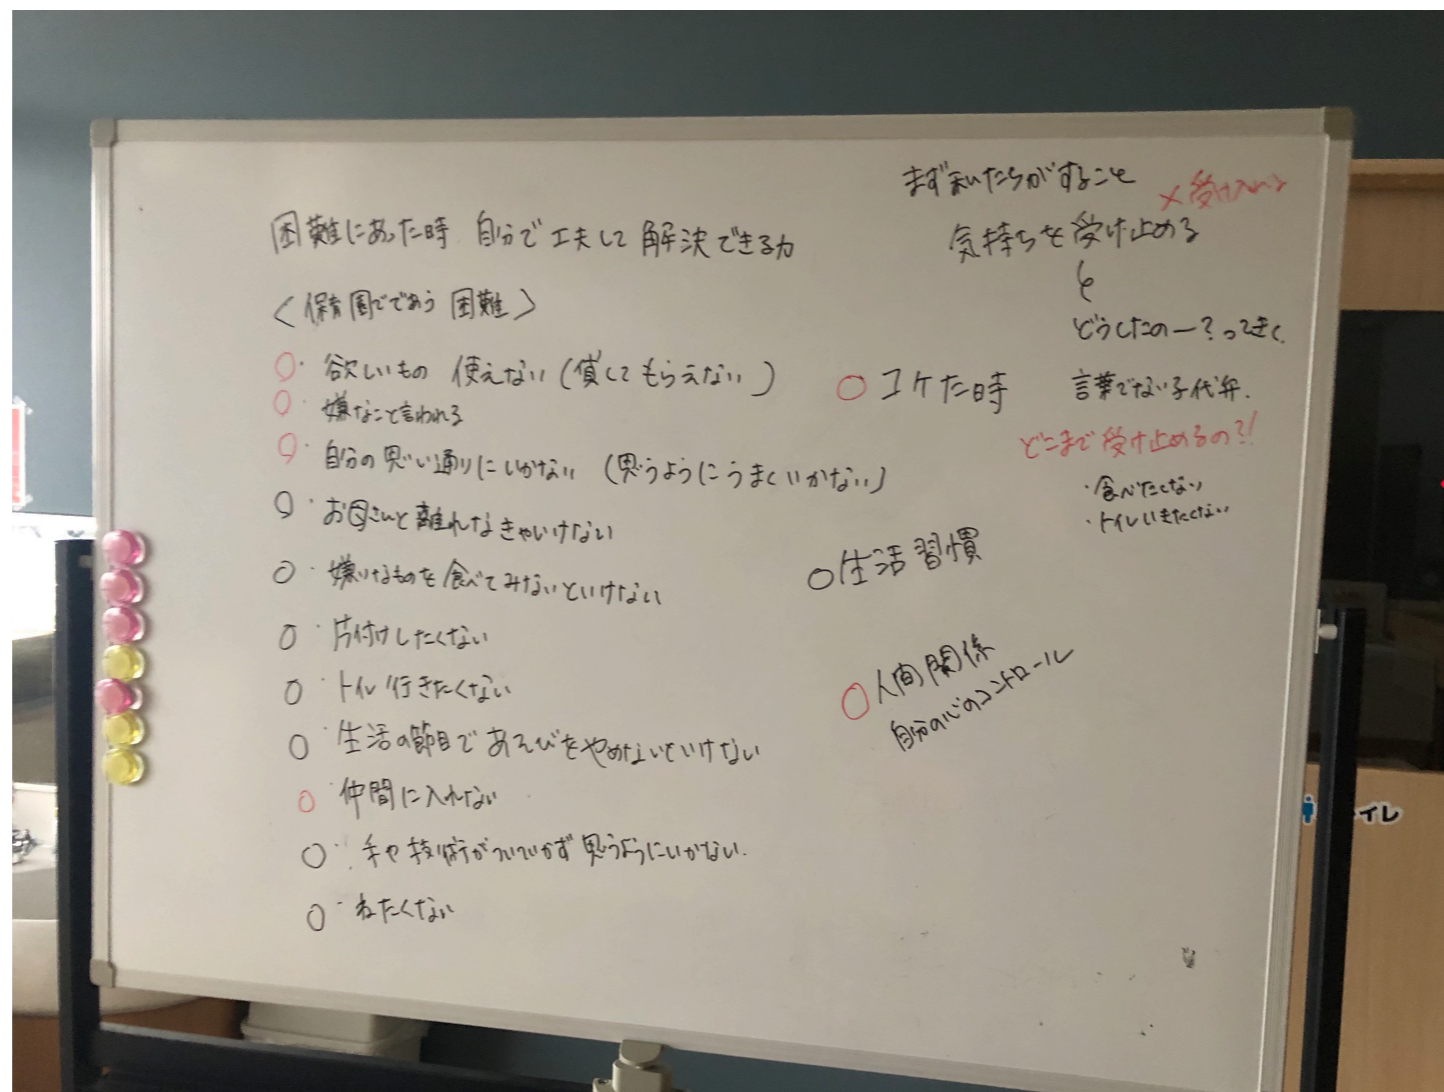 困難にあった時 自分で工夫して解決できる力
<保育園でであう困難>
○・欲しいもの 使えない(貸してもらえない)
○・嫌なこと言われる
○・自分の思い通りにいかない(思うようにうまくいかない)
○・お母さんと離れなきゃいけない
○・嫌いなものを食べてみないといけない
○・片付けしたくない
○・トイレ行きたくない
○・生活の節目であそびをやめないといけない
○・仲間に入れない
○・手や技術がついていかず思うようにいかない.
○・ねたくない
○コケた時
○生活習慣
○人間関係
自分の心のコントロール
まず私たちがすること
×受け入れる
気持ちを受け止める
と
どうしたのー?ってきく
言葉でない子代弁.
どこまで受け止めるの?!
・食べたくない
・トイレいきたくない
イレ